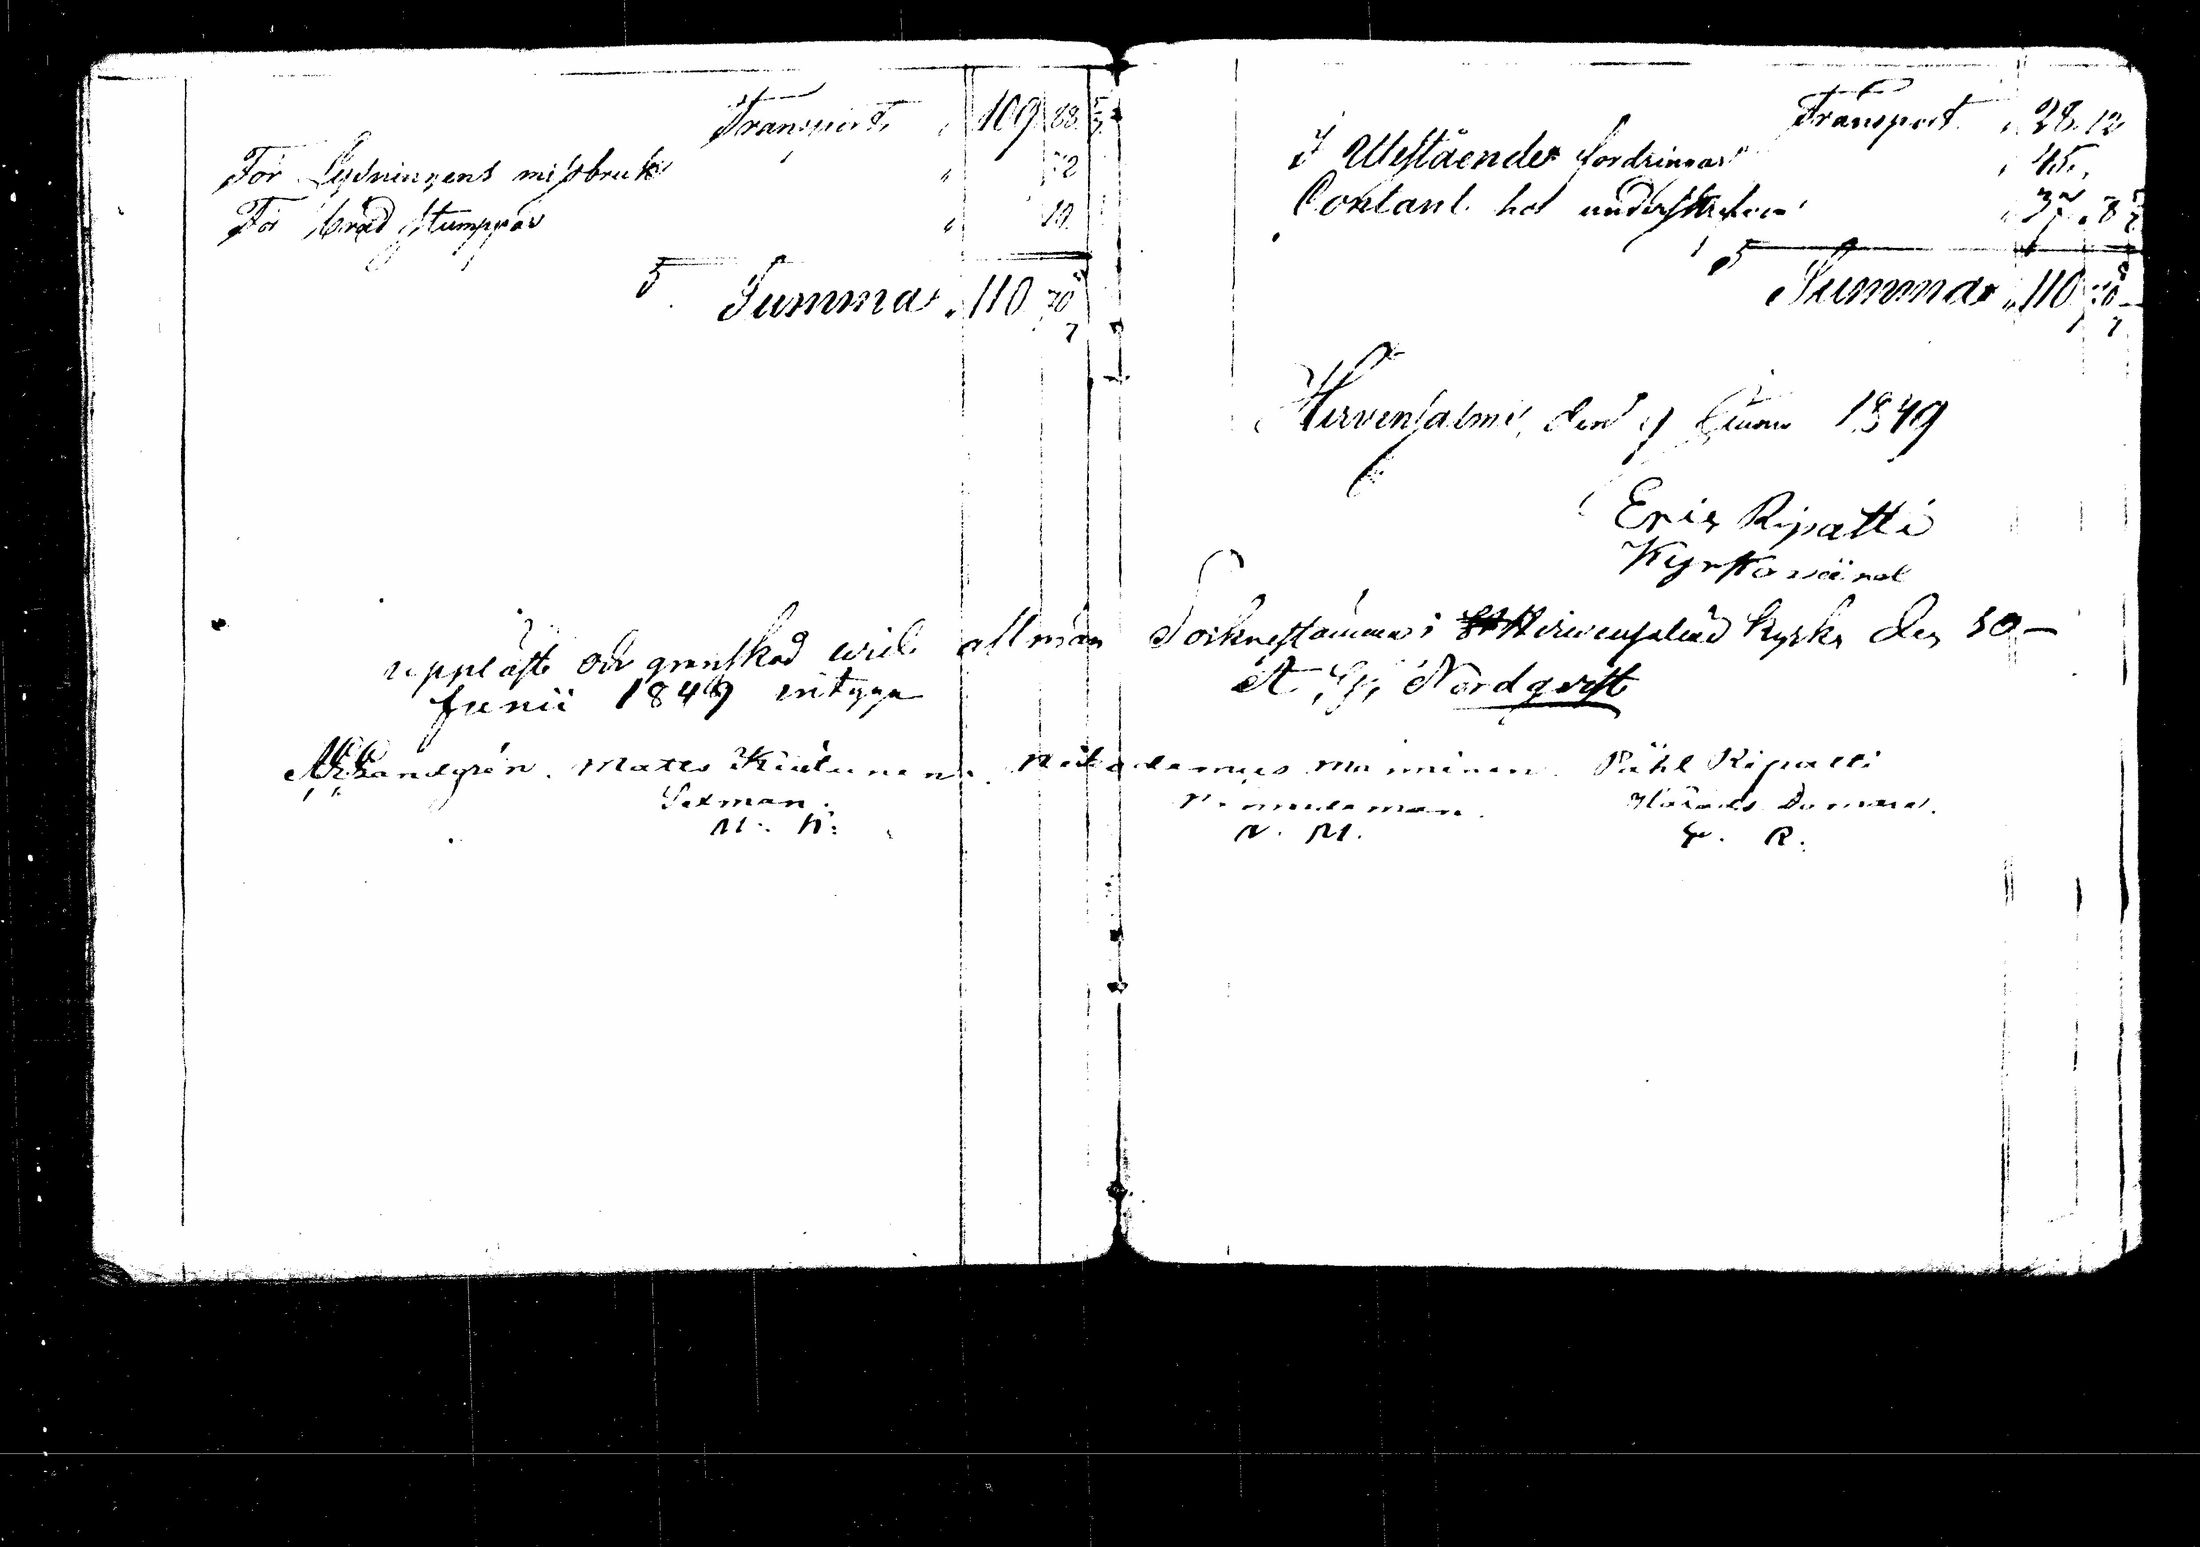 Transport. " 109 88 5/7
För Lysningens missbruk " 72
För bräd stumppar " 10.
Summa " 110 70 5/7
Transport. " 28. 12
I Utestående fordringar " 45.
Contant hos underskrefven " 37. 58 5/7
Summa " 110 70 5/7
Hirvensalmi, den 9 Junii 1849
Eric Ripatti
Kyrkovärd
uppläste och granskad wid allmän Socknestämma i Hirwensalmi kyrka den 10 –
Junii 1849 intyga A. G. Nordqvist
Sandgrén. Mats Kiälunen. Nikodemus Manninen. Påhl Ripatti
Sexman. Nämndeman. Härads Domare.
M. K. N. M. P. R.